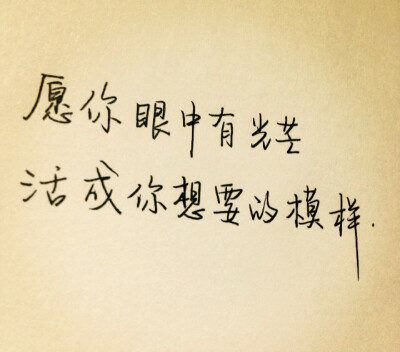 愿你眼中有光芒
活成你想要的模样.